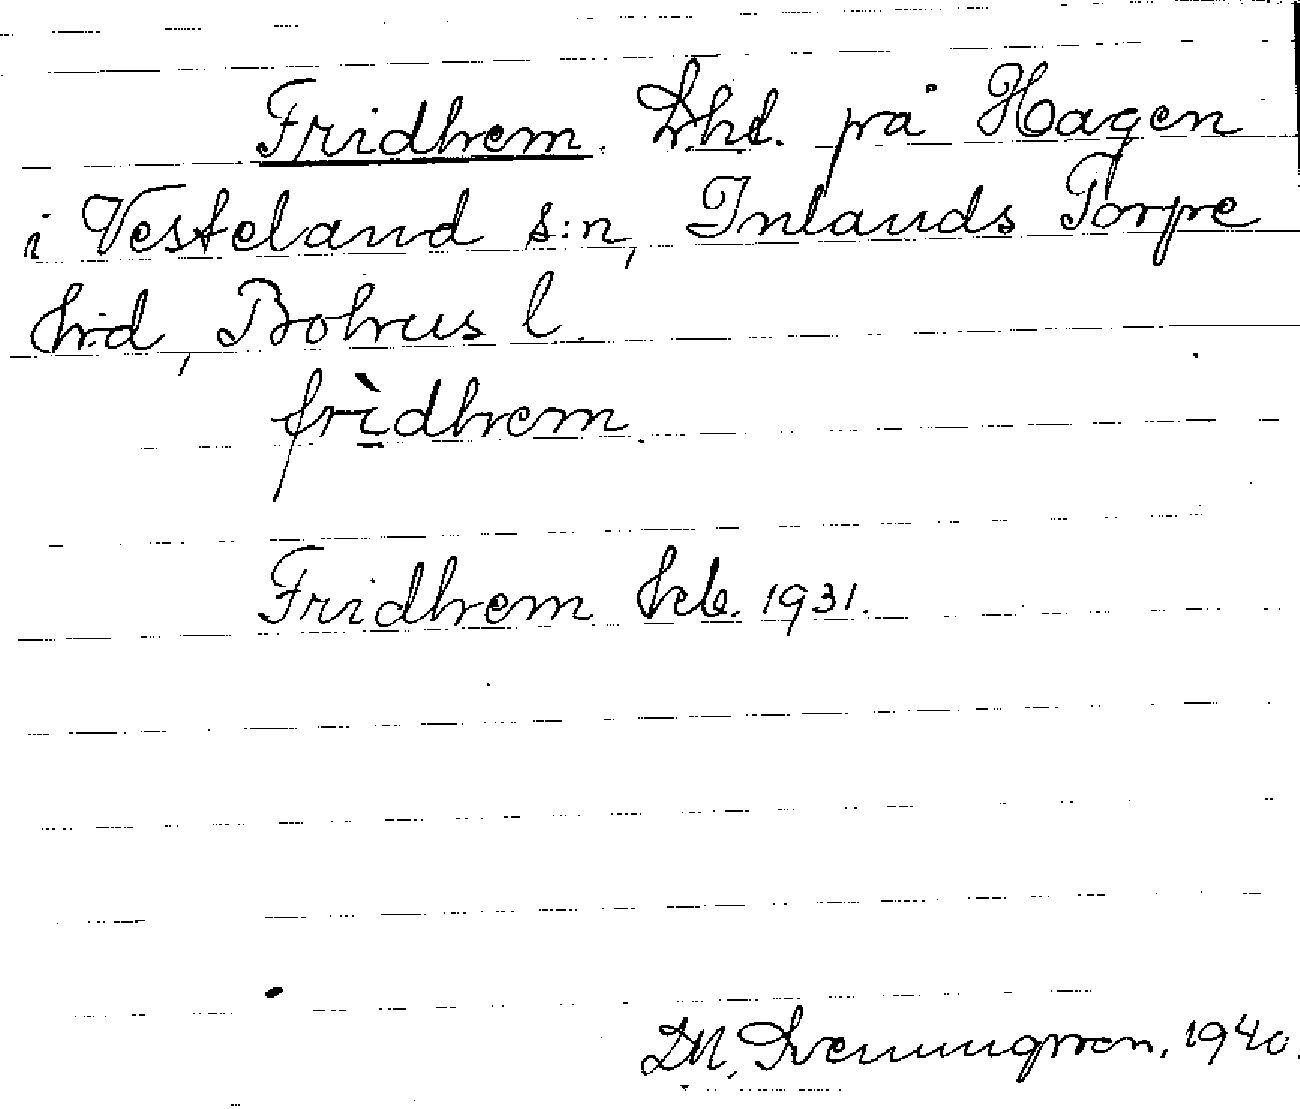 Fridhem. Lht. på Hagen
i Vesteland s:n, Inlands Torpe
hrd, Bohus l.
frìdhem.
Fridhem hrb. 1931.
D.M. Svenungsson. 1940.